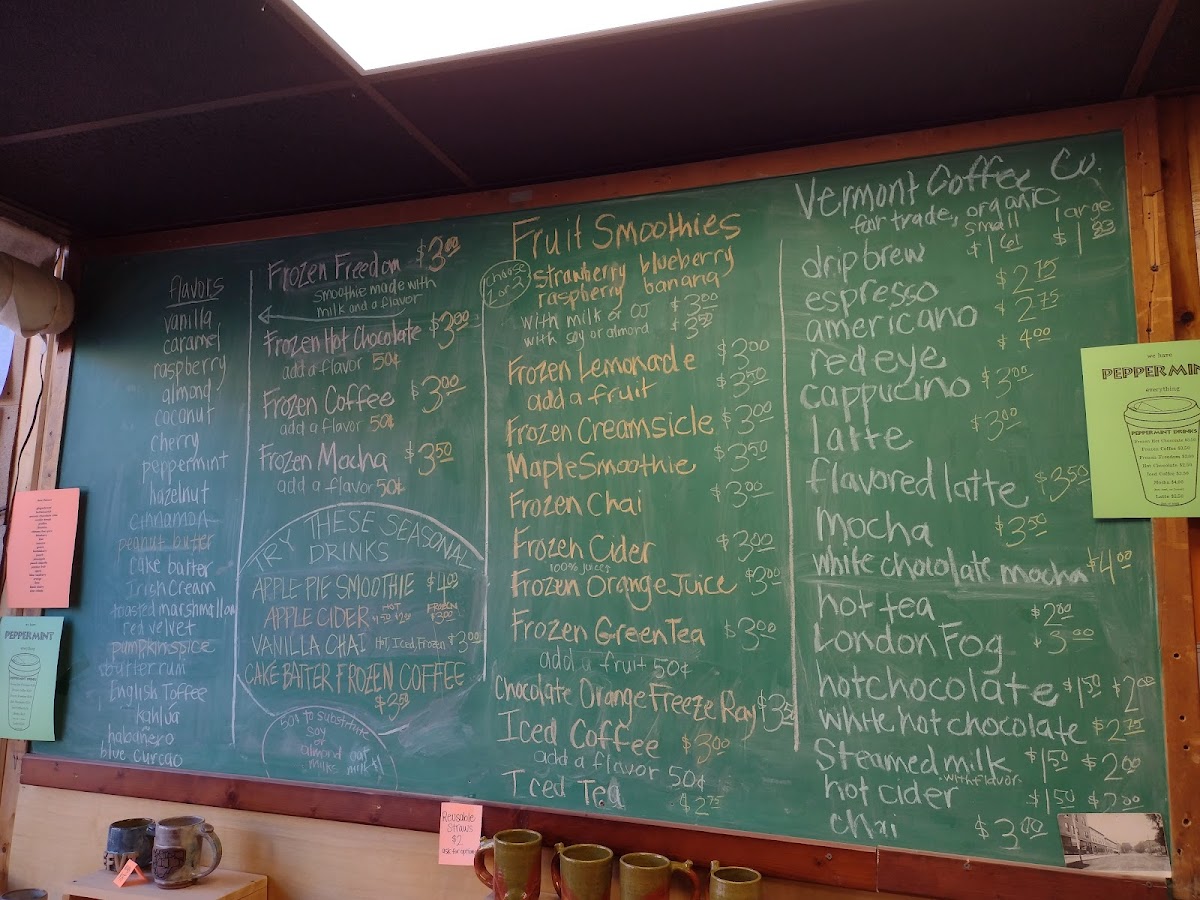 flavors
vanilla
caramel
raspberry
almond
coconut
cherry
peppermint
hazelnut
cinnamon
peanut butter
cake batter
Irish Cream
toasted marshmallow
red velvet
pumpkin spice
butter rum
English Toffee
kahlua
habañero
blue curcao
Frozen Freedom $3.00
smoothie made with
milk and a flavor
Frozen Hot Chocolate $3.00
add a flavor 50¢
Frozen Coffee $3.00
add a flavor 50¢
Frozen Mocha $3.50
add a flavor 50¢
TRY THESE SEASONAL
DRINKS
APPLE PIE SMOOTHIE $4.00
APPLE CIDER HOT FROZEN $3.00
VANILLA CHAI Hot, Iced, Frozen $3.00
CAKE BATTER FROZEN COFFEE
$2.50
50¢ to substitute
soy
or
almond oat
milk milk!
Fruit Smoothies
choose
1 or 2
strawberry blueberry
raspberry banana
with milk or OJ $3.00
with soy or almond $3.50
Frozen Lemonade $3.00
add a fruit $3.50
Frozen Creamsicle $3.00
Maple Smoothie $3.50
Frozen Chai $3.00
Frozen Cider $3.00
100% juice
Frozen Orange Juice $3.00
Frozen Green Tea $3.00
add a fruit 50¢
Chocolate Orange Freeze Ray $3.50
Iced Coffee $3.00
add a flavor 50¢
Iced Tea $2.75
Vermont Coffee Co.
fair trade, organic
small large
drip brew $1.61 $1.83
espresso $2.75
americano $2.75
red eye $4.00
cappucino $3.00
latte $3.00
flavored latte $3.50
mocha $3.50
white chocolate mocha $4.00
hot tea $2.00
London Fog $3.00
hot chocolate $1.50 $2.00
white hot chocolate $2.75
Steamed milk $1.50 $2.00
with flavor
hot cider $1.50 $2.00
chai $3.00
we have
PEPPERMIN
everything
PEPPERMINT DRINKS
Frozen Hot Chocolate
Frozen Coffee
Frozen Freedom
Hot Chocolate
Iced Coffee
Mocha
Latte
PEPPERMINT
Reusable
Straws
$2
ask for options